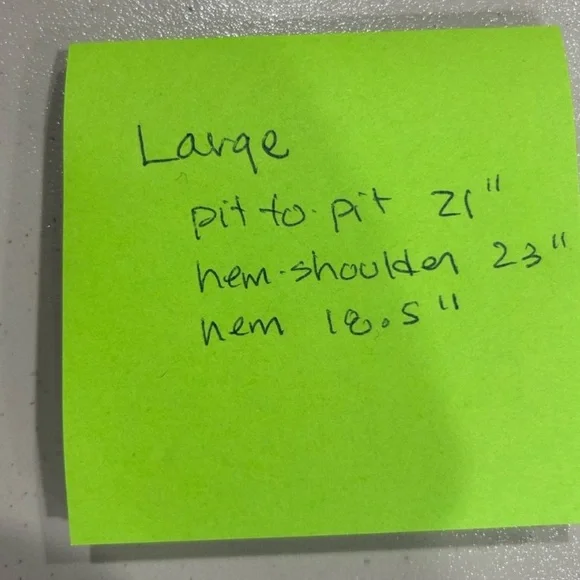 Large
pit to pit 21"
hem-shoulder 23"
hem 18.5"